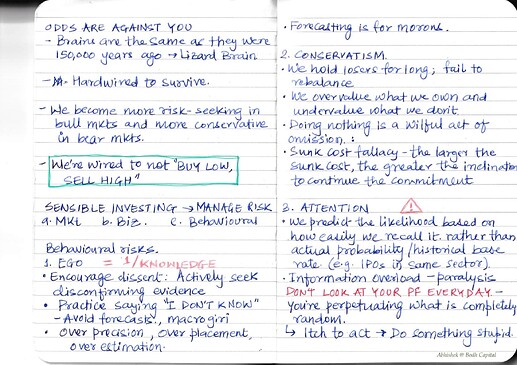 ODDS ARE AGAINST YOU
- Brains are the same as they were
150,000 years ago → Lizard Brain
- Hardwired to survive.
- We become more risk-seeking in
bull mkts and more conservative
in bear mkts.
- We're wired to not "BUY LOW,
SELL HIGH"
SENSIBLE INVESTING → MANAGE RISK
a. Mkt b. Biz. c. Behavioural
Behavioural risks.
1. EGO = 1/KNOWLEDGE
• Encourage dissent: Actively seek
disconfirming evidence
• Practice saying "I DON'T KNOW"
- Avoid forecasts, macrogiri
• Over precision, Over placement,
over estimation.
• Forecasting is for morons.
2. CONSERVATISM.
• We hold losers for long; fail to
rebalance
• We overvalue what we own and
undervalue what we don't.
• Doing nothing is a wilful act of
omission.:
• Sunk cost fallacy - the larger the
sunk cost, the greater the inclination
to continue the commitment
3. ATTENTION
• We predict the likelihood based on
how easily we recall it. rather than
actual probability/historical base
rate (e.g. IPOs in same sector).
• Information overload - paralysis
DON'T LOOK AT YOUR PF EVERYDAY -
you're perpetuating what is completely
random.
↳ Itch to act → Do something stupid.
Abhishek @ Bodh Capital